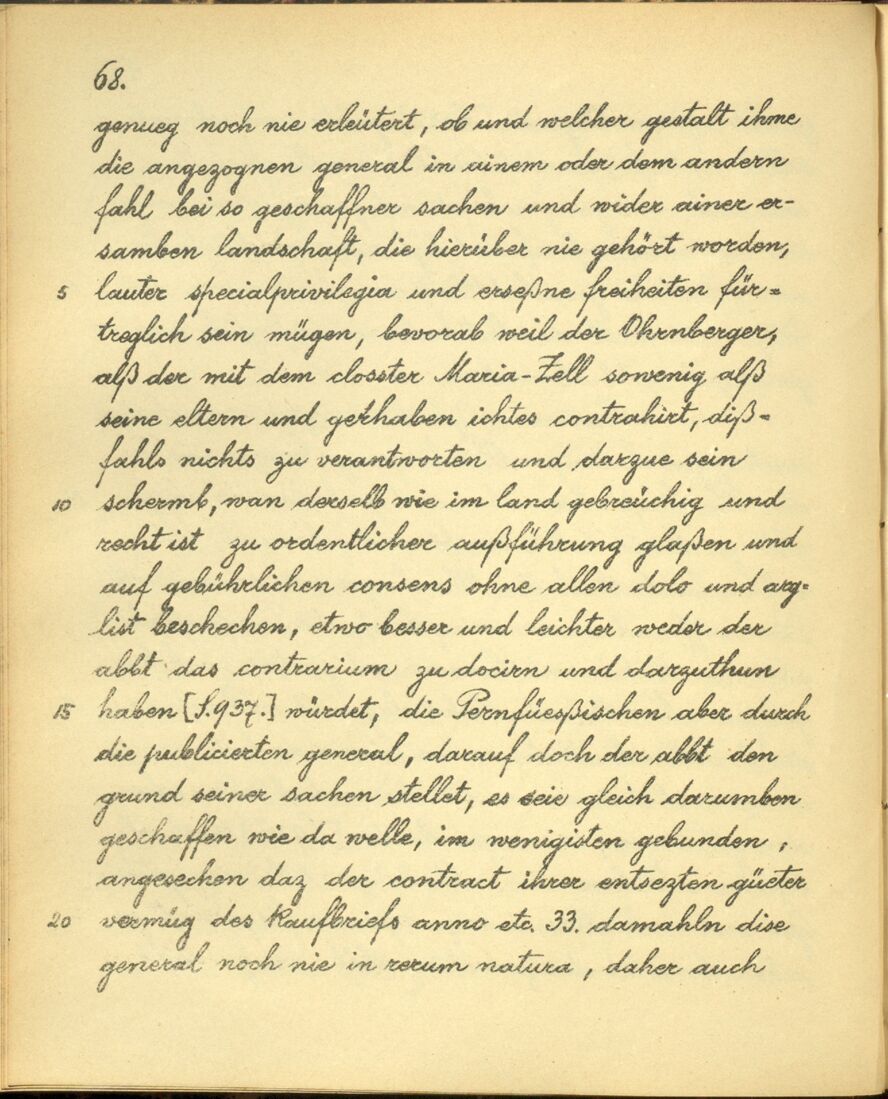 68.
genueg noch nie erleütert, ob und welcher gestalt ihme
die angezognen general in ainem oder dem andern
fahl bei so geschaffner sachen und wider ainer er-
samben landschaft, die hierüber nie gehört worden,
5 lauter specialprivilegia und erseßne freiheiten für=
treglich sein mügen, bevorab weil der Ohrnberger,
alß der mit dem closster Maria-Zell sowenig alß
seine eltern und gerhaben ichtes contrahirt, diß=
fahls nichts zu verantworten und darzue sein
10 schermb, wan derselb wie im land gebreüchig und
recht ist zu ordentlicher außführung glaßen und
auf gebührlichen consens ohne allen dolo und arg=
list beschechen, etwo besser und leichter weder der
abbt das contrarium zu docirn und darzuthun
15 haben [S.937.] würdet, die Pernfüeßischen aber durch
die publicierten general, darauf doch der abbt den
grund seiner sachen stellet, es seie gleich darumben
geschaffen wie da welle, im wenigisten gebunden,
angesechen daz der contract ihrer entsezten güeter
20 vermüg des kaufbriefs anno etc. 33. damahln dise
general noch nie in rerum natura, daher auch